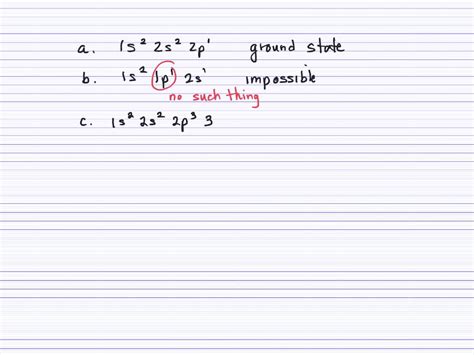 a. 1s² 2s² 2p¹ ground state
b. 1s² 1p¹ 2s¹ impossible
no such thing
c. 1s² 2s² 2p³ 3